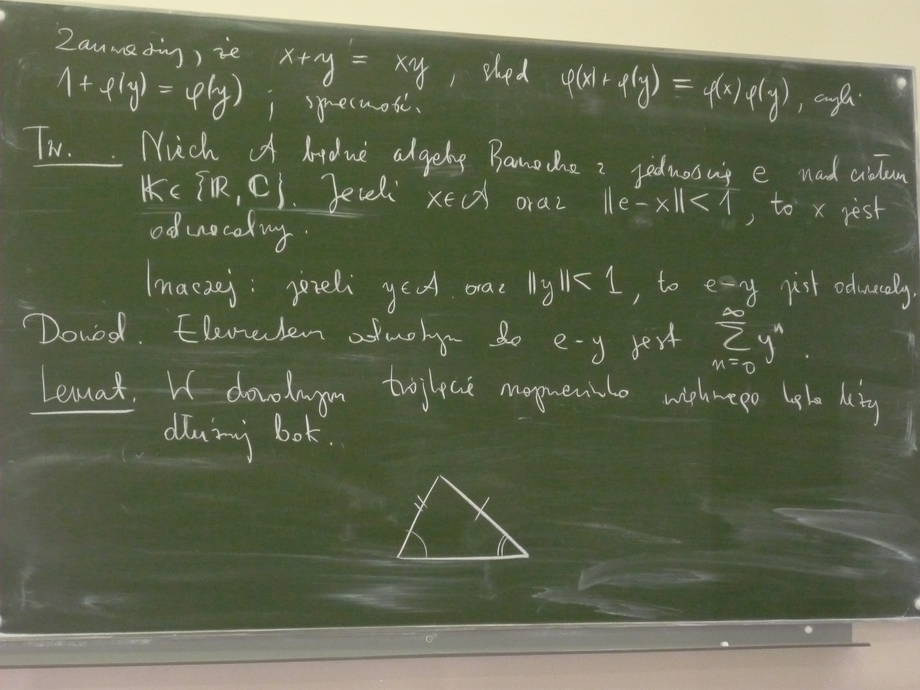 Zauważmy, że x+y = xy, skąd φ(x)+φ(y) = φ(x)φ(y), czyli
1+φ(y) = φ(y) ; sprzeczność.
Tw. Niech A będzie algebrą Banacha z jednością e nad ciałem
K∈{R, C}. Jeżeli x∈A oraz ||e-x||<1, to x jest
odwracalny.
Inaczej: jeżeli y∈A oraz ||y||<1, to e-y jest odwracalny.
Dowód. Elementem odwrotnym do e-y jest ∑_{n=0}^{∞} y^n.
Lemat. W dowolnym trójkącie naprzeciwko większego kąta leży
dłuższy bok.